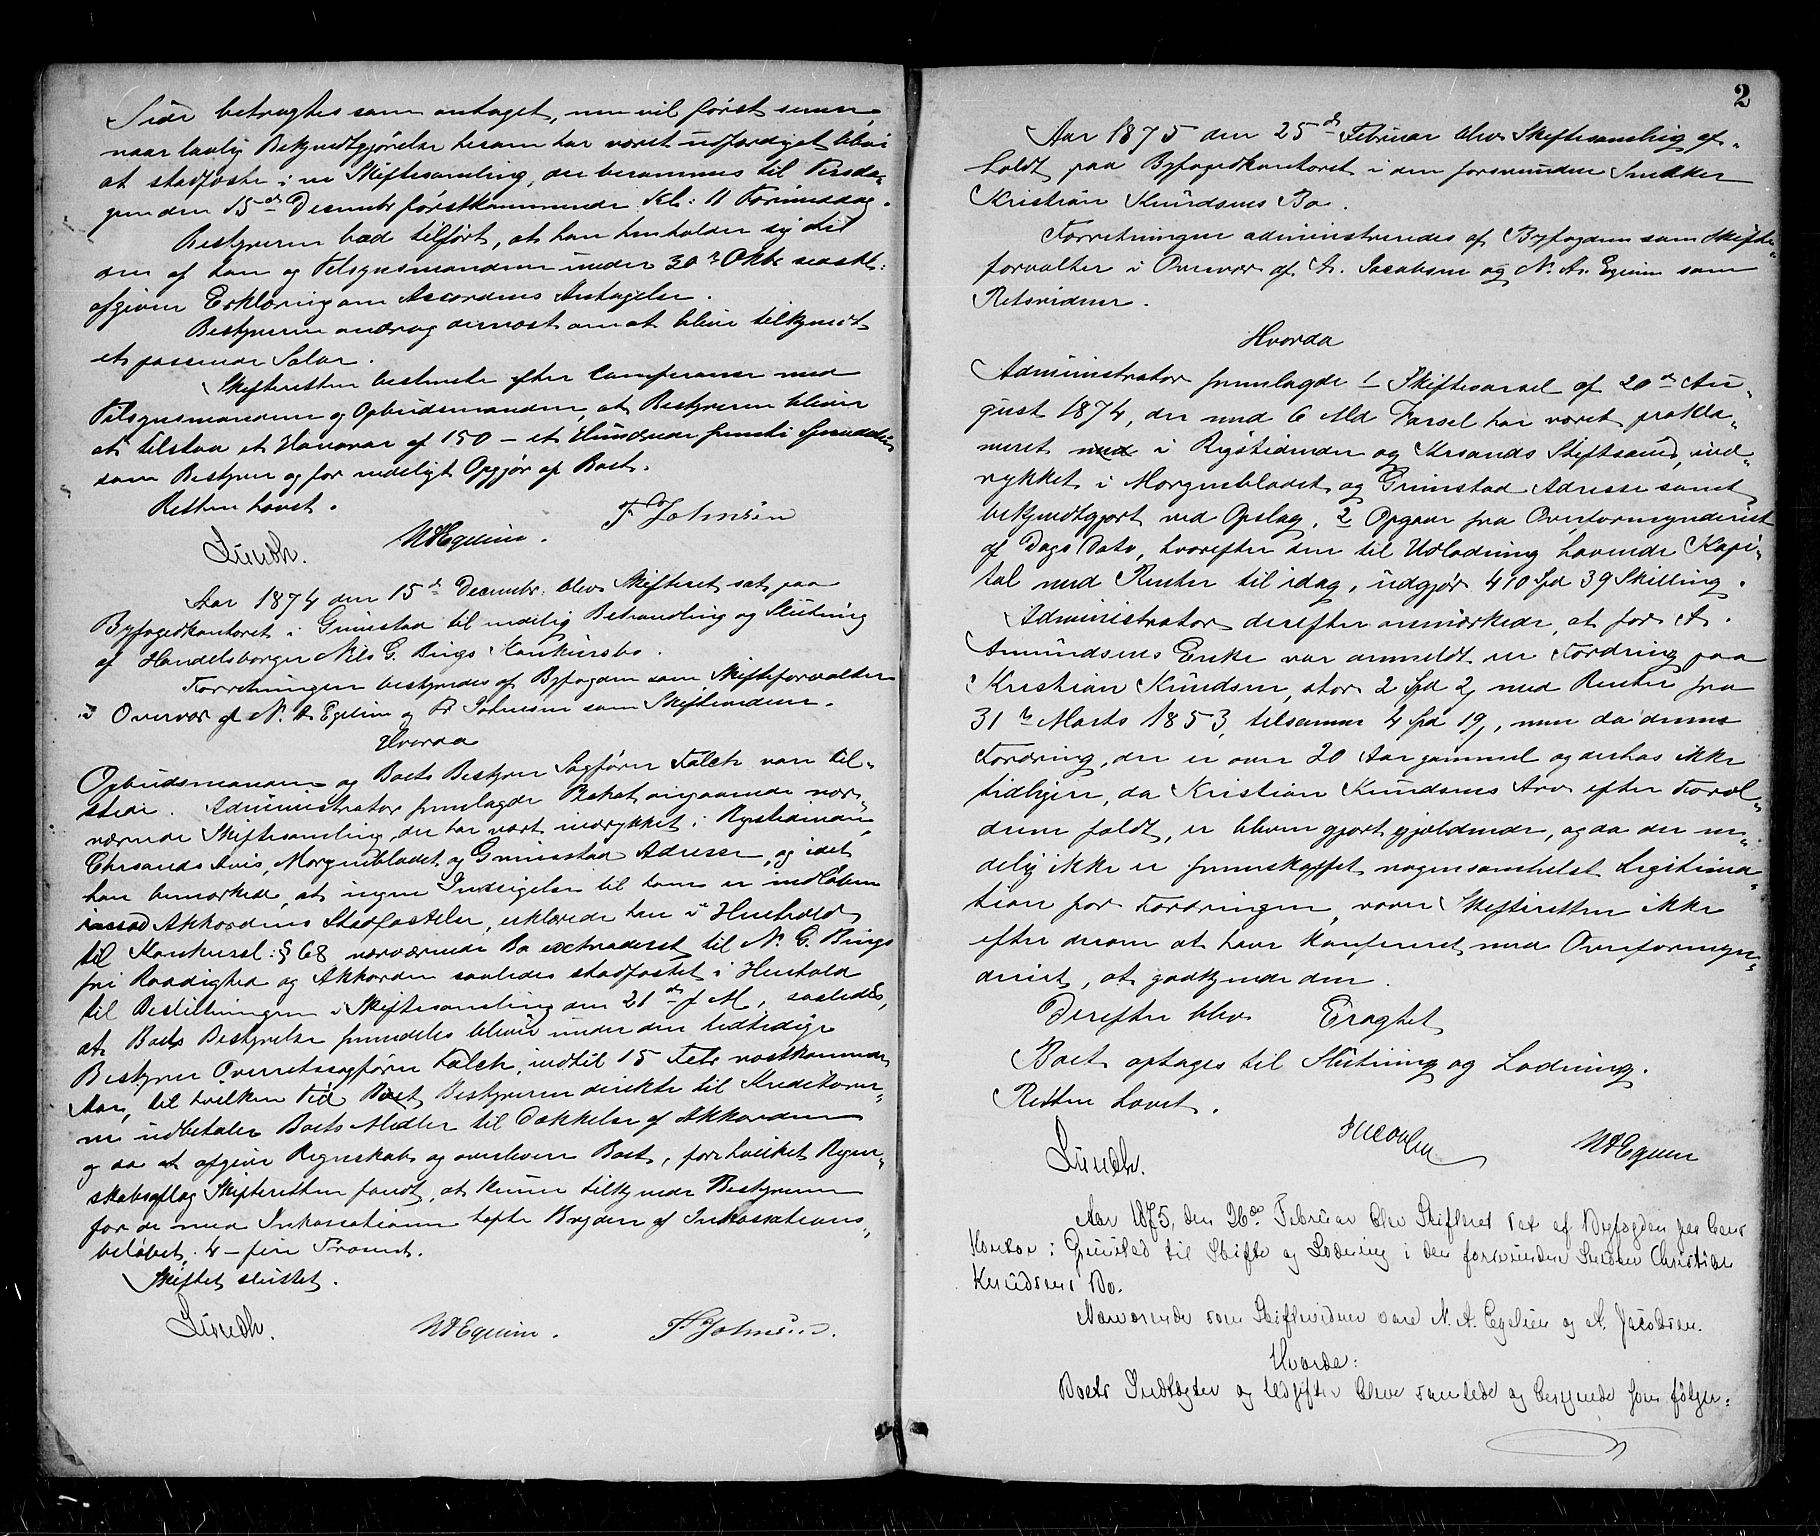 Side betragtes som antaget, nu vil først kunne,
naar lovlig Bekjendtgjørelse herom har været udfærdiget, blive
at stadfæste i en Skiftesamling, der berammes til Tirsda-
gen den 15de Decembr førstkommende Kl: 11 Formiddag.
Bestyreren bad tilført, at han henholder sig til
den af ham og Tilsynsmanden under 30te Oktbr
afgivne Erklæring om Accordens Antagelse.
Bestyreren androg dernæst om at blive tilkjendt
et passende Salær.
Skifteretten bestemte efter Conferance med
Tilsynsmanden og Opbudsmanden, at Bestyreren bliver
at tilstaa et Honorar af 150 – et Hundrede femti Speciedaler
som Bestyrer og for endeligt Opgjør af Boet.
Retten hævet.
Lundh. NAEgelien. F Johnsen
Aar 1874 den 15de Decembr. blev Skifteret sat paa
Byfogedkontoret i Grimstad til endelig Behandling og Slutning
af Handelsborger Nils G. Bings Konkursbo.
Forretningen bestyredes af Byfogden som Skifteforvalter
i Overvær af N. A. Egelien og Fr Johnsen som Skiftevidner.
Hvorda
Opbudsmanden og Boets Bestyrer Sagfører Falch var til-
stede. Administrator fremlagde Plakat angaaende nær-
værende Skiftesamling, der har vært indrykket i Rigstidende,
Chrsands Avis, Morgenbladet og Grimstad Adresse, og idet
han bemærkede, at ingen Indsigelse til ham er indløben
imod Akkordens Stadfæstelse, erklærede han i Henhold
til Konkursl: § 68 nærværende Bo extraderet til N. G. Bings
fri Raadighed og Akkorden saaledes stadfæstet i Henhold
til Beslutningen i Skiftesamling den 21de f. M., saaledes,
at Boets Bestyrelse fremdeles bliver under den hidtidige
Bestyrer Overretssagfører Falch, indtil 15 Febr næstkommende
Aar, til hvilken Tid Boet Bestyreren direkte til Kreditorer-
ne udbetaler Boets Midler til Dækkelse af Akkorden
og da at afgive Regnskab og overlevere Boet, for hvilket Regn-
skabsaflæg Skifteretten fandt, at kunne tilkjende Bestyreren
for de med Inkassationen havte Bryderi af Inkassations-
beløbet 4 – fire Procent.
Skiftet sluttet.
Lundh. NAEgelien. F Johnsen.
2
Aar 1875 den 25de Februar blev Skiftesamling af-
holdt paa Byfogedkontoret i den forsvundne Snekker
Kristian Knudsens Bo.
Forretningen administreredes af Byfogden som Skifte-
forvalter i Overvær af A. Jacobsen og N. A. Egelien som
Retsvidner.
Hvorda
Administrator fremlagde 1 Skiftevarsel af 20de Au-
gust 1874, der med 6 Mds Varsel har været prokla-
meret med i Rigstidende og Krsands Stiftsavis, ind-
rykket i Morgenbladet og Grimstad Adresse samt
bekjendtgjort ved Opslag. 2 Opgave fra Overformynderiet
af Dags Dato, hvorefter den til Udlodning havende Kapi-
tal med Renter til idag, udgjør 410 Spd 39 Skilling.
Administrator derefter anmærkede, at for A.
Amundsens Enke var anmeldt en Fordring paa
Kristian Knudsen, stor 2 Spd 2, med Renter fra
31te Marts 1853, tilsammen 4 Spd 19, men da denne
Fordring, der er over 20 Aar gammel og derhos ikke
tidligere, da Kristian Knudsens Arv efter Foræl-
drene faldt, er bleven gjort gjældende, og da der en-
delig ikke er fremskaffet nogensomhelst Legitima-
tion for Fordringen, vover Skifteretten ikke
efter derom at have konfereret med Overformyn-
deriet, at godkjende den.
Derefter blev Eragtet
Boet optages til Slutning og Lodning.
Retten hævet.
Lundh. Jacobsen NAEgelien
Aar 1875, den 26de Februar blev Skifteret sat af Byfogden paa hans
Kontor i Grimstad til Skifte og Lodning i den forsvundne Snedker Christian
Knudsens Bo.
Nærværende som Skiftevidner vare N. A. Egelien og A. Jacobsen.
Hvorda:
Boets Indtægter og Udgifter bleve samlede og beregnede som følger: